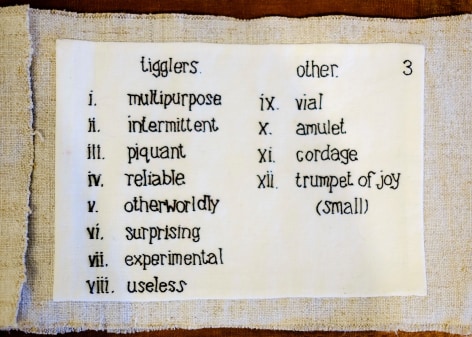 tigglers.
i. multipurpose
ii. intermittent
iii. piquant
iv. reliable
v. otherworldly
vi. surprising
vii. experimental
viii. useless
other. 3
ix. vial
x. amulet
xi. cordage
xii. trumpet of joy
(small)